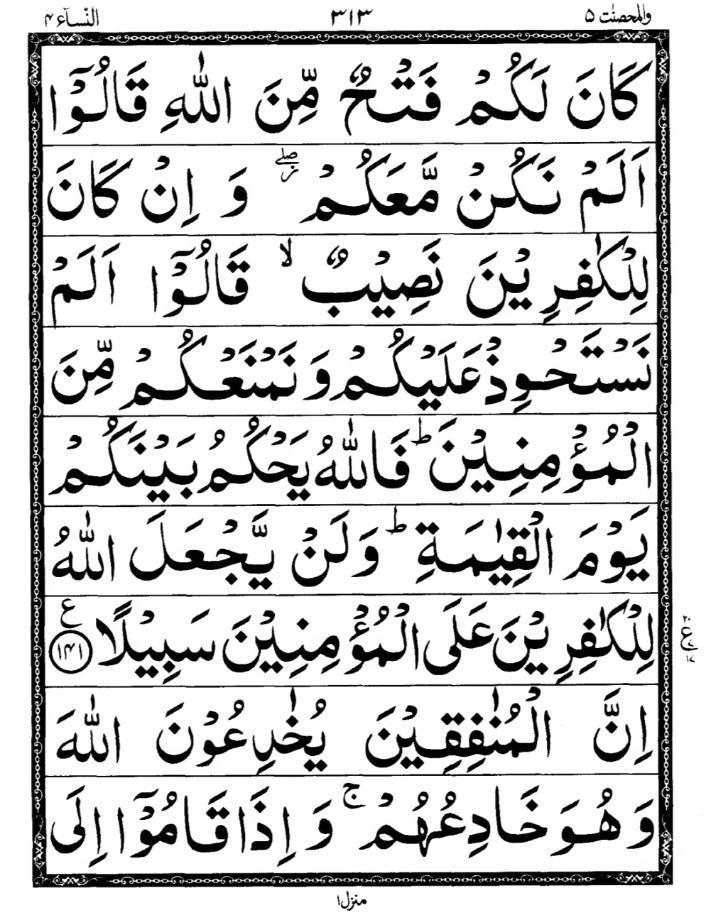 والمحصنٰت ۵ ۳۱۳ النسآء ۴
كَانَ لَكُمْ فَتْحٌ مِّنَ اللّٰهِ قَالُوْۤا
اَلَمْ نَكُنْ مَّعَكُمْ ۖ وَ اِنْ كَانَ
لِلْكٰفِرِيْنَ نَصِيْبٌ ۙ قَالُوْۤا اَلَمْ
نَسْتَحْوِذْ عَلَيْكُمْ وَ نَمْنَعْكُمْ مِّنَ
الْمُؤْمِنِيْنَ ؕ فَاللّٰهُ يَحْكُمُ بَيْنَكُمْ
يَوْمَ الْقِيٰمَةِ ؕ وَ لَنْ يَّجْعَلَ اللّٰهُ
لِلْكٰفِرِيْنَ عَلَى الْمُؤْمِنِيْنَ سَبِيْلًا ﴿۱۴۱﴾ ع
۲۰ ع ۱۷
اِنَّ الْمُنٰفِقِيْنَ يُخٰدِعُوْنَ اللّٰهَ
وَ هُوَ خَادِعُهُمْ ۚ وَ اِذَا قَامُوْۤا اِلَى
منزل ۱